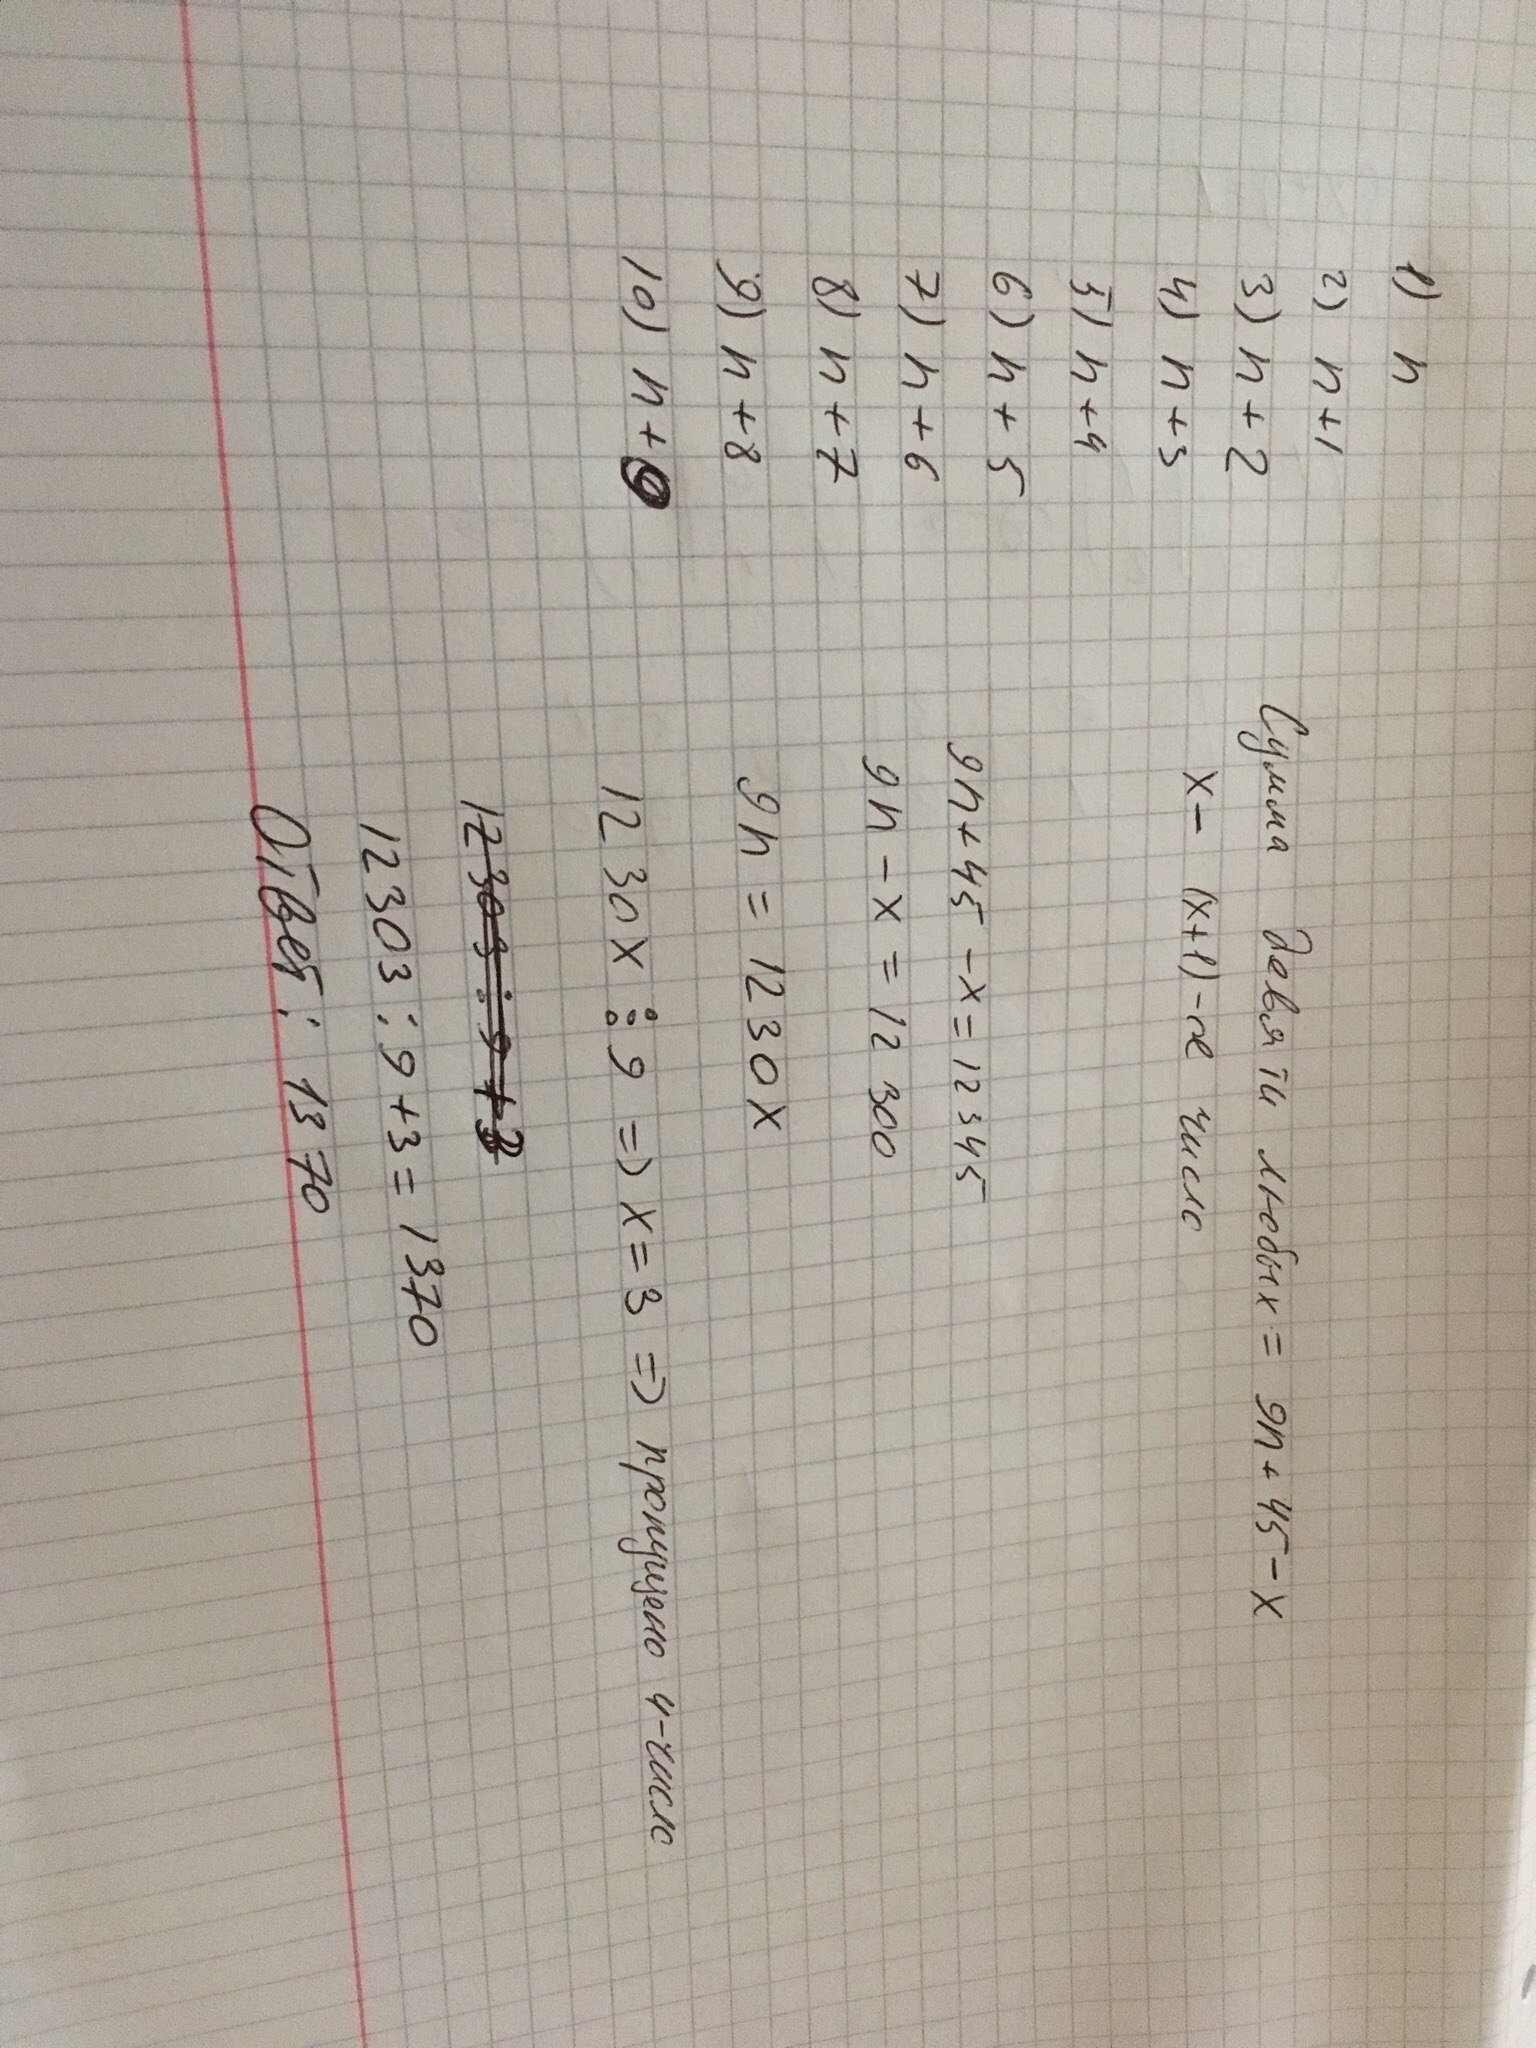 1) n
2) n+1
3) n+2
4) n+3
5) n+4
6) n+5
7) n+6
8) n+7
9) n+8
10) n+9
Сумма девяти любых = 9n+45-x
x - (x+1)-ое число
9n+45-x=12345
9n-x=12300
9n=1230x
1230x⋮9 => x=3 => пропущено 4-число
12303:9+3
12303:9+3=1370
Ответ: 1370